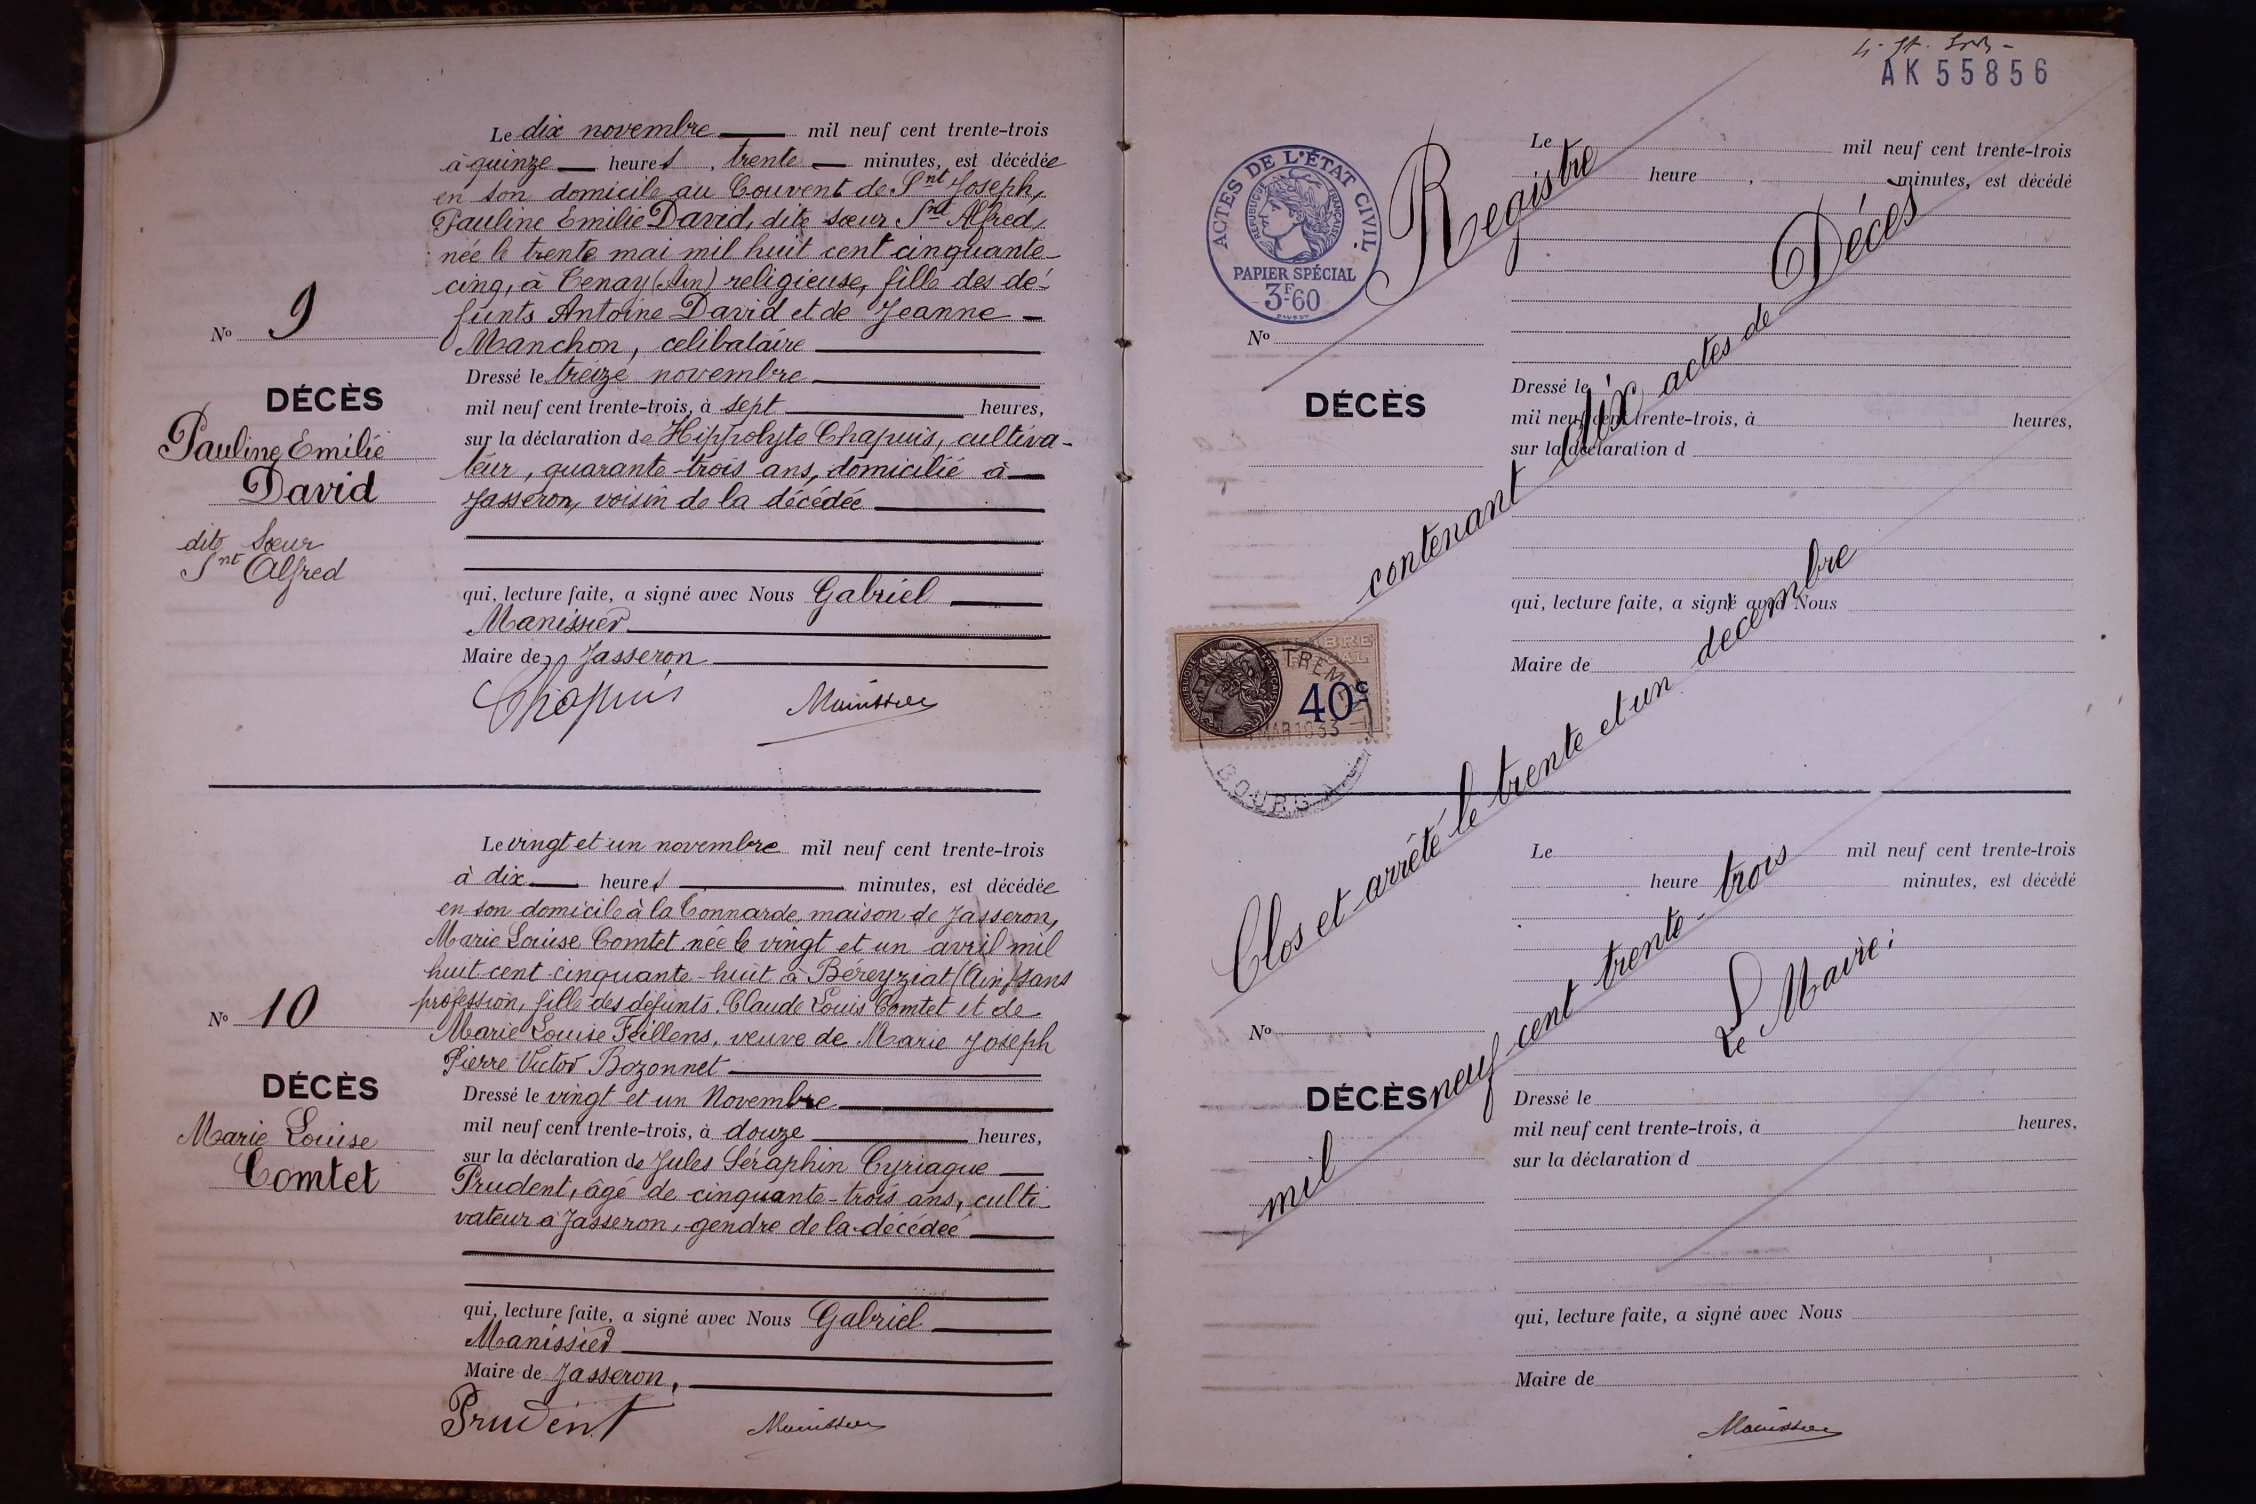 Le dix novembre mil neuf cent trente-trois
à quinze heures, trente minutes, est décédée
en son domicile au Couvent de Snt Joseph,
Pauline Emilie David, dite sœur Snt Alfred,
née le trente mai mil huit cent cinquante
cinq, à Tenay (Ain) religieuse, fille des dé-
funts Antoine David et de Jeanne
Manchon, célibataire
No 9
DÉCÈS
Pauline Emilie
David
dite Sœur
Snt Alfred
Dressé le treize novembre
mil neuf cent trente-trois, à sept heures,
sur la déclaration de Hippolyte Chapuis, cultiva-
teur, quarante-trois ans, domicilié à
Jasseron, voisin de la décédée
qui, lecture faite, a signé avec Nous Gabriel
Manissier
Maire de Jasseron
Chapuis Manissier
Le vingt et un novembre mil neuf cent trente-trois
à dix heures minutes, est décédée
en son domicile à la Tonnarde, maison de Jasseron,
Marie Louise Comtet née le vingt et un avril mil
huit cent cinquante-huit à Béreyziat (Ain) sans
profession, fille des défunts Claude Louis Comtet et de
Marie Louise Feillens, veuve de Marie Joseph
Pierre Victor Bozonnet
No 10
DÉCÈS
Marie Louise
Comtet
Dressé le vingt et un Novembre
mil neuf cent trente-trois, à douze heures,
sur la déclaration de Jules Séraphin Cyriaque
Prudent, âgé de cinquante-trois ans, culti-
vateur à Jasseron, gendre de la décédée
qui, lecture faite, a signé avec Nous Gabriel
Manissier
Maire de Jasseron,
Prudent Manissier
AK 55856
ACTES DE L'ÉTAT CIVIL
RÉPUBLIQUE FRANÇAISE
PAPIER SPÉCIAL
3F60
Registre contenant dix actes de Décès
Clos et arrêté le trente et un decembre
mil neuf cent trente-trois
Le Maire:
Le mil neuf cent trente-trois
heure , minutes, est décédé
No
DÉCÈS
Dressé le
mil neuf cent trente-trois, à heures,
sur la déclaration d
qui, lecture faite, a signé avec Nous
Maire de
40c
MAR 1933
BOURG
Le mil neuf cent trente-trois
heure minutes, est décédé
No
DÉCÈS
Dressé le
mil neuf cent trente-trois, à heures,
sur la déclaration d
qui, lecture faite, a signé avec Nous
Maire de
Manissier